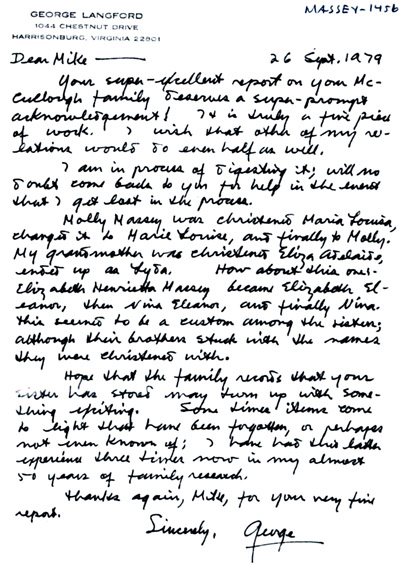 MASSEY-1456
GEORGE LANGFORD
1044 CHESTNUT DRIVE
HARRISONBURG, VIRGINIA 22801
Dear Mike —— 26 Sept. 1979
Your super-excellent report on your Mc-
Cullough family deserves a super-prompt
acknowledgement! It is truly a fine piece
of work. I wish that other of my re-
lations would do even half as well.
I am in process of digesting it; will no
doubt come back to you for help in the event
that I get lost in the process.
Molly Massey was christened Maria Louisa,
changed it to Marie Louise, and finally to Molly.
My grandmother was christened Eliza Adelaide,
ended up as Lyda. How about this one!-
Elizabeth Henrietta Massey became Elizabeth El-
eanor, then Nina Eleanor, and finally Nina.
This seemed to be a custom among the sisters;
although their brothers stuck with the names
they were christened with.
Hope that the family records that your
sister has stored may turn up with some-
thing exciting. Some times items come
to light that have been forgotten, or perhaps
not even known of; I have had this latter
experience three times now in my almost
50 years of family research.
Thanks again, Mike, for your very fine
report.
Sincerely, George